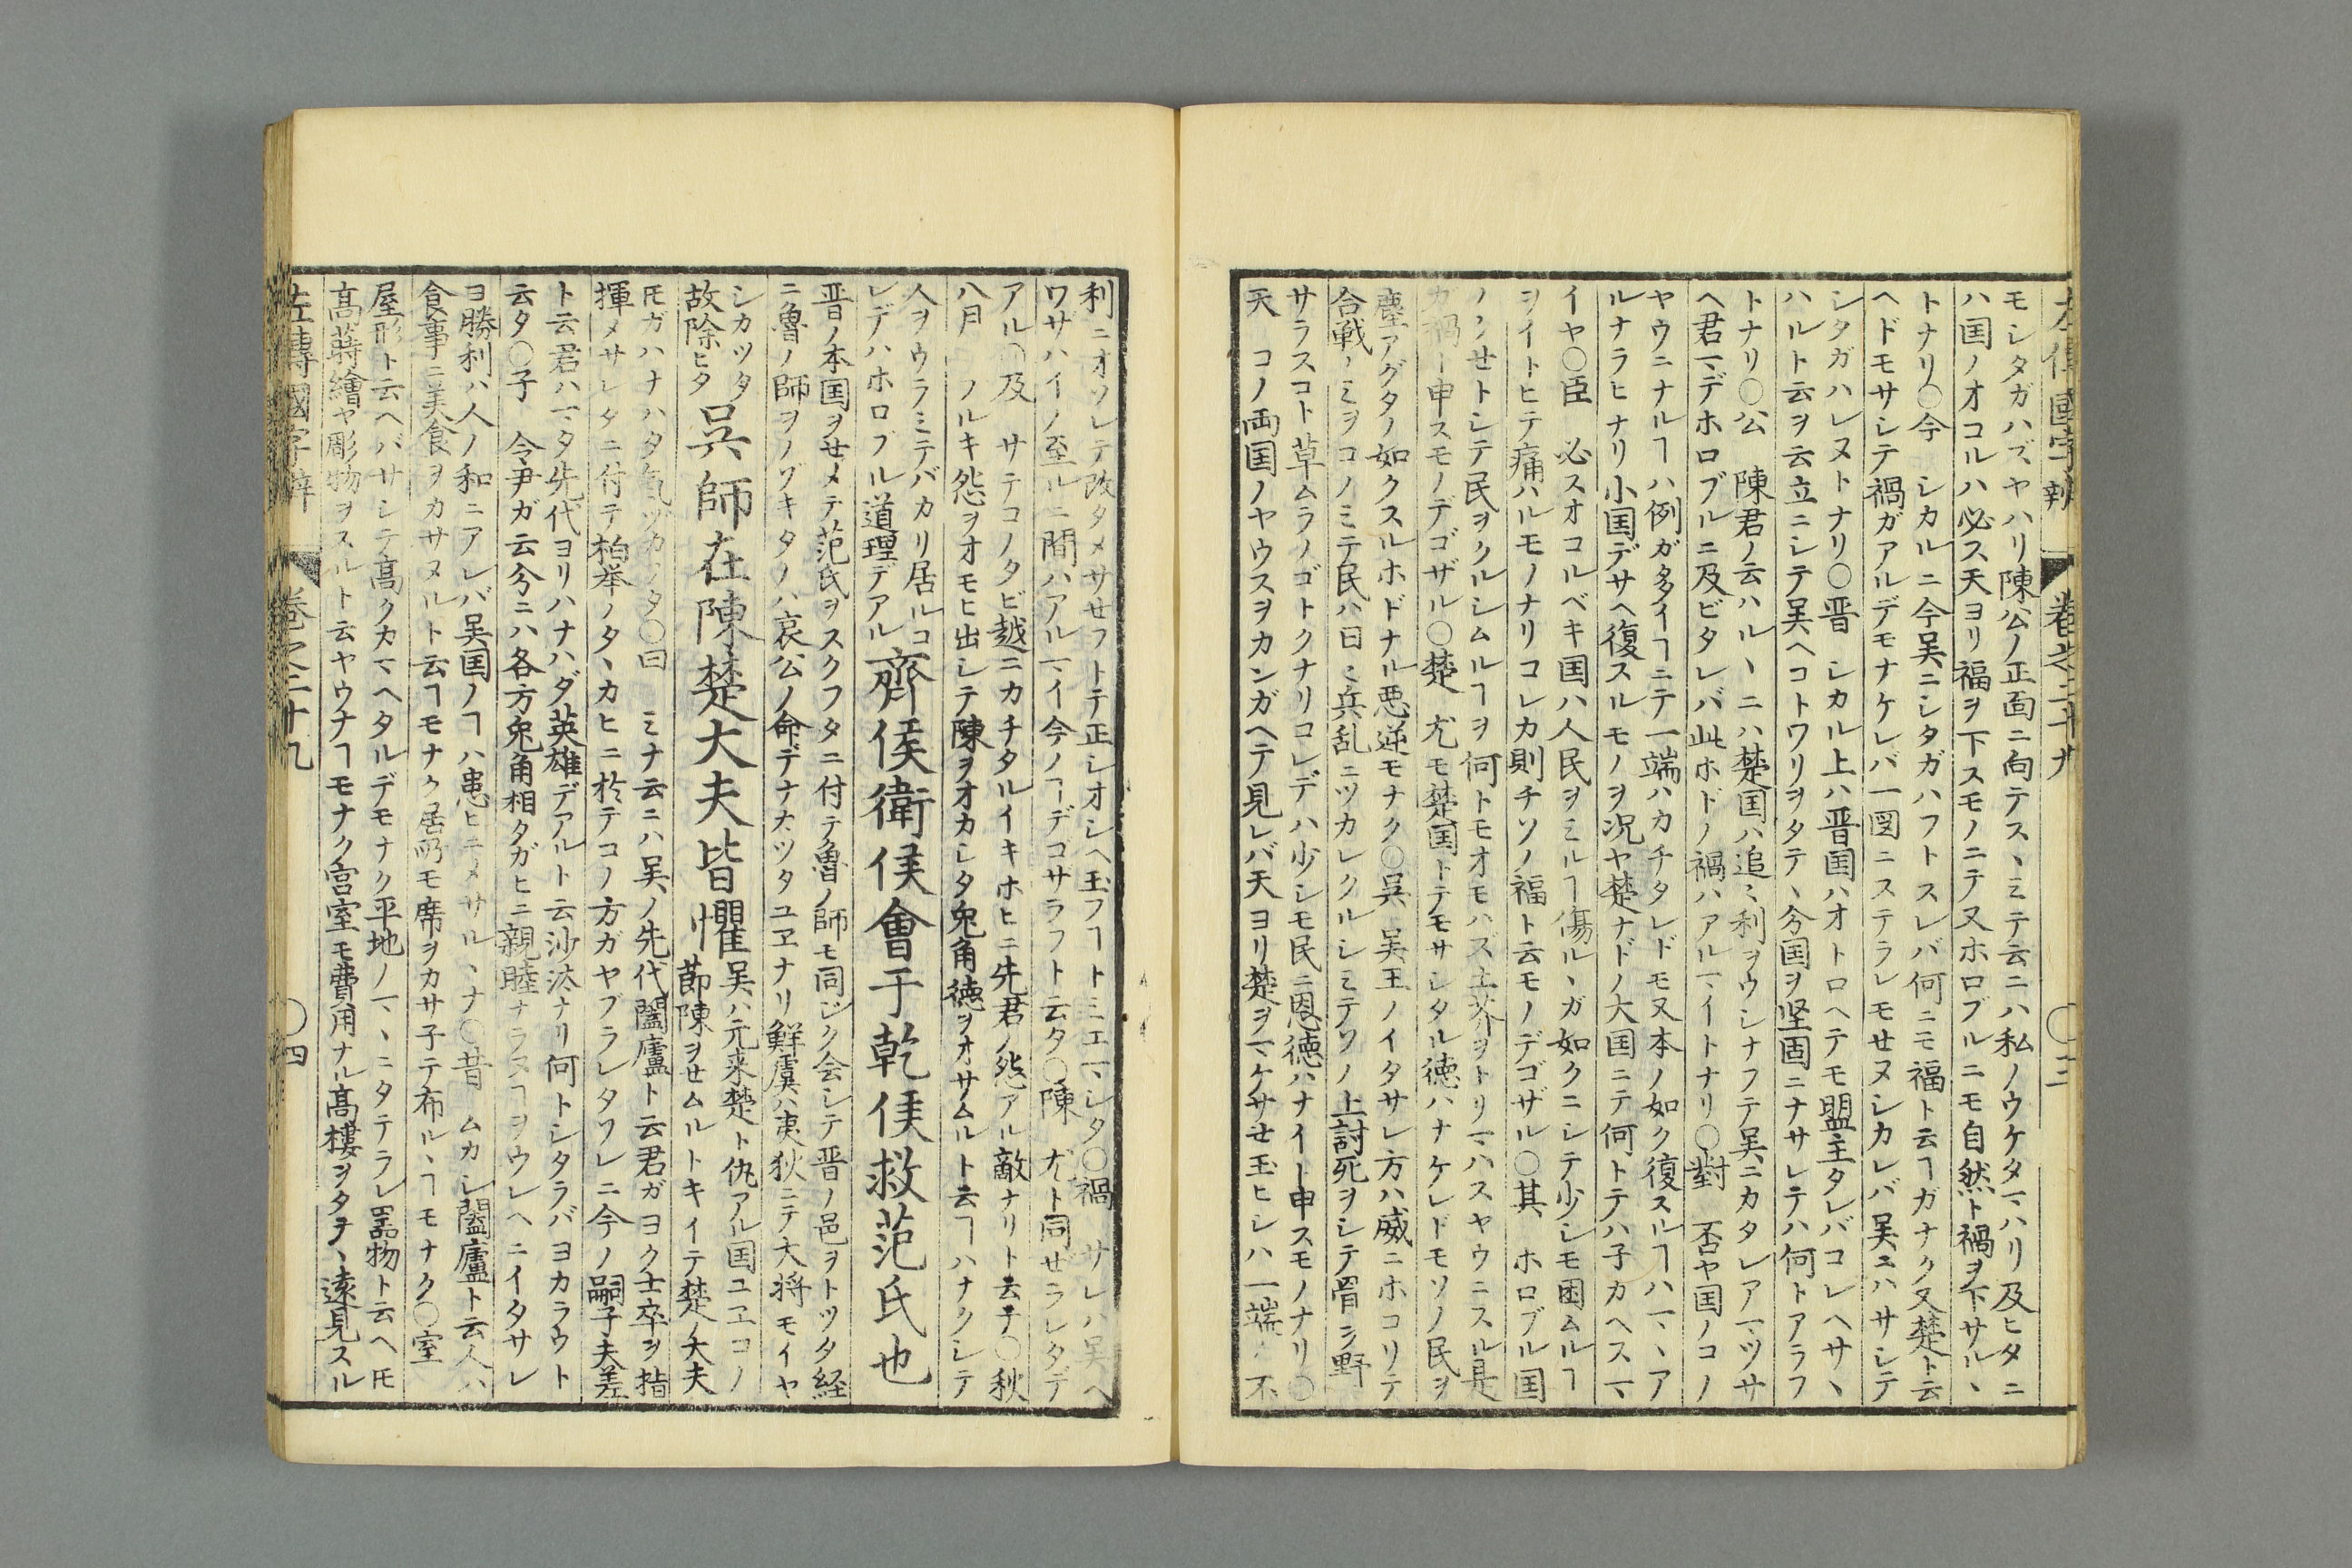 左傳國字辨 巻之二十九 〇三
モシタガハズヤハリ陳公ノ正面ニ向テスヽミテ云ニハ私ノウケタマハリ及ヒタニ
ハ国ノオコルハ必ス天ヨリ福ヲ下スモノニテ又ホロブルニモ自然ト禍ヲ下サルヽ
トナリ〇今 シカルニ今吴ニシタガハフトスレバ何ニモ福ト云ヿガナク又楚ト云
ヘドモサシテ禍ガアルデモナケレバ一図ニステラレモセヌシカレバ吴ニハサシテ
シタガハレヌトナリ〇晋 シカル上ハ晋国ハオトロヘテモ盟主タレバコレヘサヽ
ハルト云ヲ云立ニシテ吴ヘコトワリヲタテヽ今国ヲ坚固ニナサレテハ何トアラフ
トナリ〇公 陳君ノ云ハルヽニハ楚国ハ追ミ利ヲウシナフテ吴ニカタレアマツサ
ヘ君マデホロブルニ及ビタレバ此ホドノ禍ハアルマイトナリ〇對 否ヤ国ノコノ
ヤウニナルヿハ例ガ多イヿニテ一端ハカチタレドモ又本ノ如ク復スルヿハマヽア
ルナラヒナリ小国デサヘ復スルモノヲ况ヤ楚ナドノ大国ニテ何トテハ子カヘスマ
イヤ〇臣 必スオコルベキ国ハ人民ヲミルヿ傷ルヽガ如クニシテ少シモ困ムルヿ
ヲイトヒテ痛ハルモノナリコレカ則チソノ福ト云モノデゴザル〇其 ホロブル国
ノクセトシテ民ヲクルシムルヿヲ何トモオモハズ土芥ヲトリマハスヤウニスル是
ガ禍ト申スモノデゴザル〇楚 尤モ楚国トテモサシタル徳ハナケレドモソノ民ヲ
塵アグタノ如クスルホドナル悪逆モナク〇吴 吴王ノイタサレ方ハ威ニホコリテ
合戦ノミヲコノミテ民ハ日ミ兵乱ニツカレクルシミテソノ上討死ヲシテ骨ヲ野
サラスコト草ムラノゴトクナリコレデハ少シモ民ニ恩徳ハナイト申スモノナリ〇
天 コノ両国ノヤウスヲカンガヘテ見レバ天ヨリ楚ヲマケサセ玉ヒシハ一端ノ不
利ニオソレテ改タメサセフトテ正シオシヘ玉フヿトミエマシタ〇禍 サレハ吴ヘ
ワザハイノ至ルニ間ハアルマイ今ノヿデコサラフト云タ〇陳 尤ト同セラレタデ
アル〇及 サテコノタビ越ニカチタルイキホヒニ先君ノ怨アル敵ナリト云テ〇秋
八月 フルキ怨ヲオモヒ出シテ陳ヲオカシタ兎角徳ヲオサムルト云ヿハナクシテ
人ヲウラミテバカリ居ルコ
レデハホロブル道理デアル 齊侯衛侯會于乾侯救范氏也
晋ノ本国ヲせメテ范氏ヲスクフタニ付テ魯ノ師モ同ジク会シテ晋ノ邑ヲトツタ経
ニ魯ノ師ヲノゾキタノハ哀公ノ命デナカツタユヱナリ鮮虞ハ夷狄ニテ大将モイヤ
シカツタ
故除ヒタ 吳師在陳楚大夫皆懼 吴ハ元来楚ト仇アル国ユヱコノ
節陳ヲせムルトキイテ楚ノ大夫
𪜈ガハナハタ気ヅカフタ〇曰 ミナ云ニハ吴ノ先代闔廬ト云君ガヨク士卒ヲ指
揮メサレタニ付テ柏挙ノタヽカヒニ於テコノ方ガヤブラレタフレニ今ノ嗣子夫差
ト云君ハマタ先代ヨリハナハダ英雄デアルト云沙汰ナリ何トシタラバヨカラウト
云タ〇子 令尹ガ云今ニハ各方兎角相タガヒニ親睦ナラヌヿヲウレヘニイタサレ
ヨ勝利ハ人ノ和ニアレバ吴国ノヿハ患ヒニメサルヽナ〇昔 ムカシ闔廬ト云人ハ
食事ニ美食ヲカサヌルト云ヿモナク居所モ席ヲカサ子テ布ルヽヿモナク〇室
屋形ト云ヘバサシテ高クカマヘタルデモナク平地ノマヽニタテラレ器物ト云ヘ𪜈
髙蒔繪ヤ彫物ヲスルト云ヤウナヿモナク宮室モ費用ナル髙樓ヲタテヽ遠見スル
左傳國字辨 巻之二十九 〇四